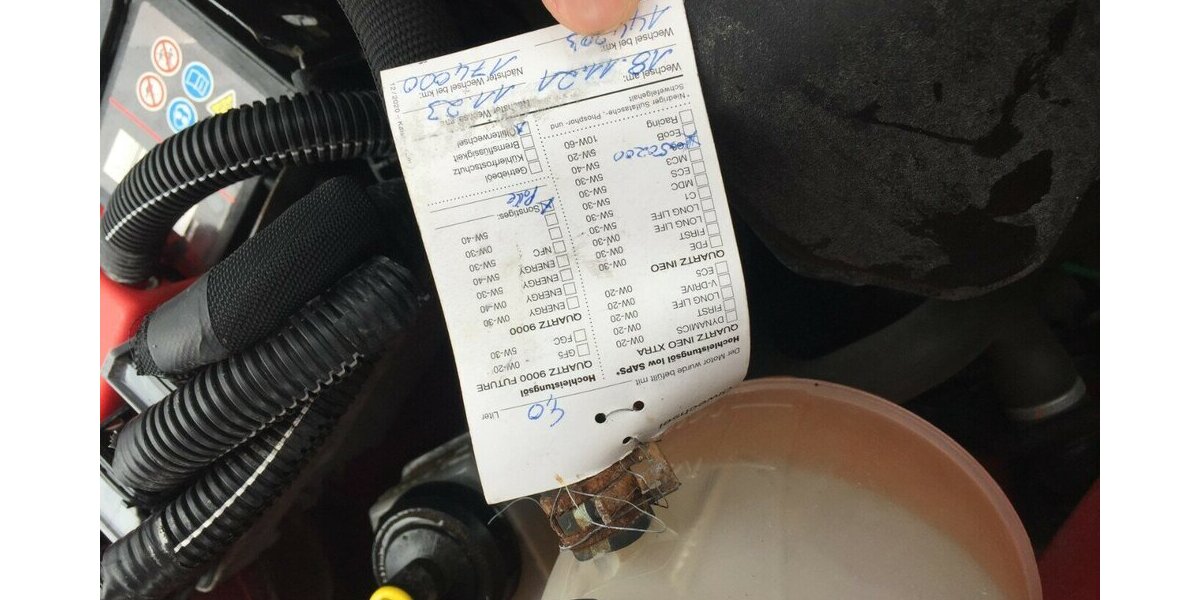 Ölwechsel
Der Motor wurde befüllt mit: 4,0 Liter
Hochleistungsöl low SAPS*
QUARTZ INEO XTRA
DYNAMICS 0W-20
FIRST 0W-20
LONG LIFE 0W-20
V-DRIVE 0W-20
EC5
QUARTZ INEO
FDE 0W-30
FIRST 0W-30
LONG LIFE 0W-30
LONG LIFE 5W-30
C1 5W-30
MDC 5W-30
ECS 5W-30
MC3 5W-40
5W-20
EcoB
Racing 10W-60
*Niedriger Sulfatasche-, Phosphor- und
Schwefelgehalt
Hochleistungsöl
QUARTZ 9000 FUTURE
GF5 0W-20
FGC 5W-30
QUARTZ 9000
ENERGY 0W-30
ENERGY 0W-40
ENERGY 5W-30
ENERGY 5W-40
NFC 5W-30
0W-30
5W-40
Sonstiges:
Getriebeöl
Kühlerfrostschutz
Bremsflüssigkeit
Ölfilterwechsel
Wechsel am: 18.11.21
Nächster Wechsel 11.23
Wechsel bei km: 144203
Nächster Wechsel bei km: 174000